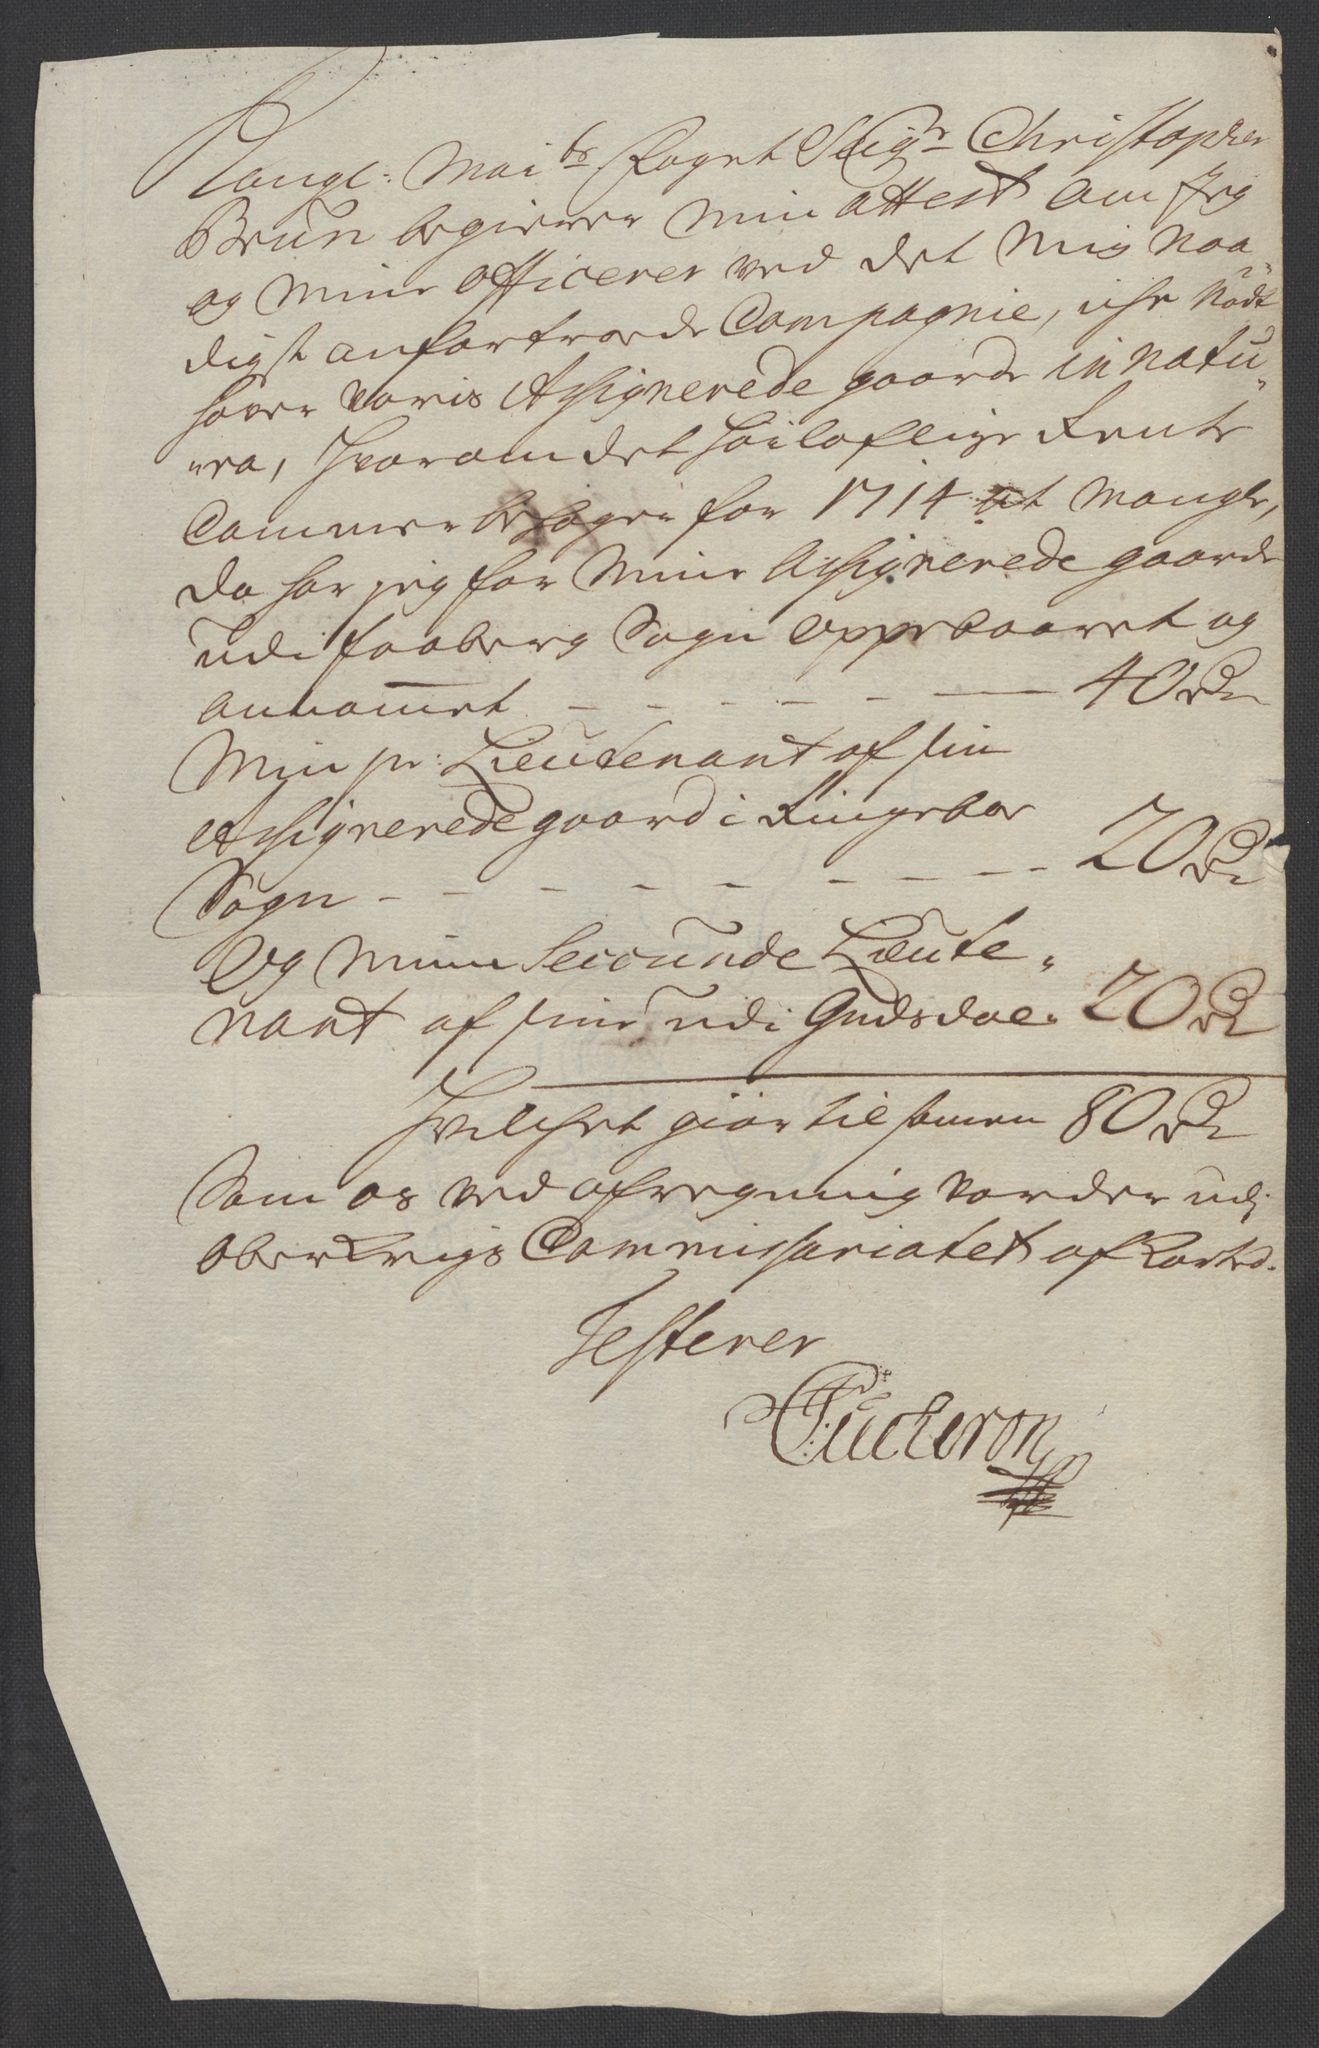 Kongl: Mai.ts Foget Seig.r Christopher
Brun begierer min attest om Jeg
og mine Officerer ved det mig naa„
digst anfortroede Compagnie, iche nödt
hafver voris Assignerede gaarde in natu„
„ra, hvorom det höiloflige Rente
Cammer besøger for 1714 at mangle,
da har jeg for mine Assignerede gaarde
udi faaberg Sogn oppebaaret og
annammet - - - - - - 40 Rdr
Min pr: Lieutenant af sin
Assignerede gaard i Ringeboe
Sogn - - - - - - - - 20 Rdr
Og minn Secounde Lieute„
nant af sine udi Gudsdal. 20 Rdr
Hvilchet giör tilsamen 80 Rdr
Som os ved afregning vorder udi
Ober Krigs Commissariatet af Korted.
Testerer